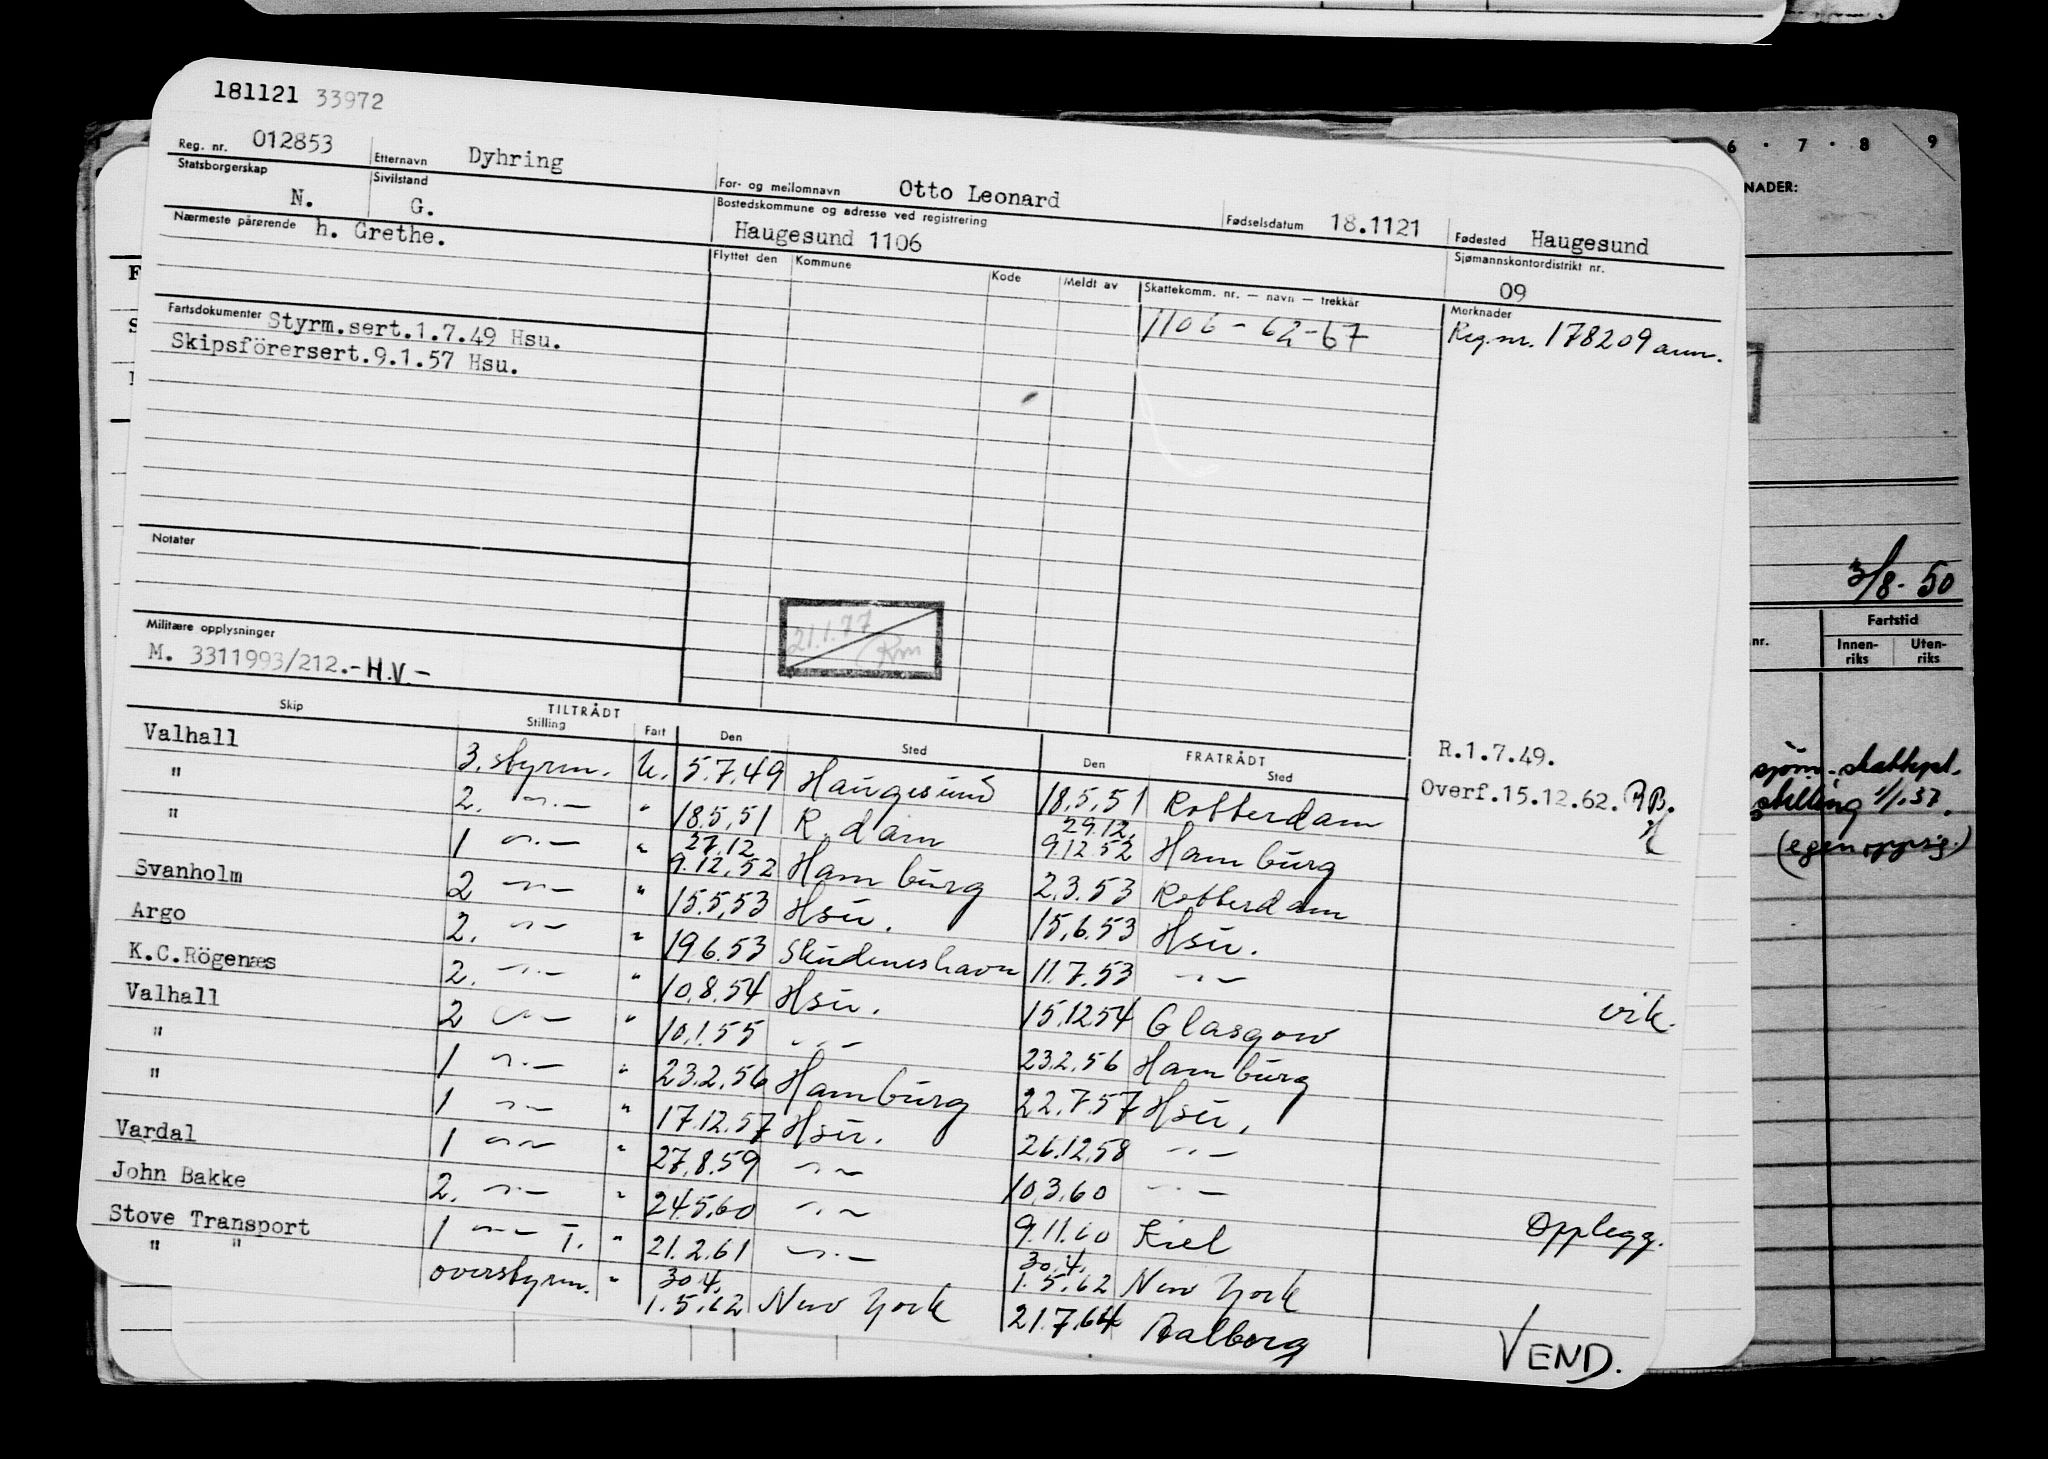 181121 33972
Reg. nr. 012853 Etternavn Dyhring For- og mellomnavn Otto Leonard Fødselsdatum 18.1121 Fødested Haugesund
Statsborgerskap N. Sivilstand G. Bostedskommune og adresse ved registrering Haugesund 1106 Sjømannskontordistrikt nr. 09
Nærmeste pårørende h. Grethe.
Flyttet den Kommune Kode Meldt av Skattekomm. nr. — navn — trekkår Merknader
1106 - 62-67 Reg.nr. 178209 ann.
Fartsdokumenter Styrm.sert.1.7.49 Hsu.
Skipsförersert.9.1.57 Hsu.
Notater
21.1.77
Rm
Militære opplysninger
M. 3311993/212.-H.V.-
TILTRÅDT FRATRÅDT
Skip Stilling Fart Den Sted Den Sted
R.1.7.49.
Overf.15.12.62.
Valhall 3. styrm. U. 5.7.49 Haugesund 18.5.51 Rotterdam
" 2. -"- " 18.5.51 R.dam 29.12. 9.12.52 Hamburg
" 1 -"- " 27.12 9.12.52 Hamburg 2.3.53 Rotterdam
Svanholm 2 -"- " 15.5.53 Hsu. 15.6.53 Hsu.
Argo 2. -"- " 19.6.53 Skudeneshavn 11.7.53 -"-
K.C.Rögenæs 2. -"- " 10.8.54 Hsu. 15.12.54 Glasgow vik.
Valhall 2 -"- " 10.1.55 -"- 23.2.56 Hamburg
" 1 -"- " 23.2.56 Hamburg 22.7.57 Hsu.
" 1 -"- " 17.12.57 Hsu. 26.12.58 -"-
Vardal 1 -"- " 27.8.59 -"- 10.3.60 -"-
John Bakke 2. -"- " 24.5.60 -"- 9.11.60 Kiel Opplegg.
Stove Transport 1 -"- T. " 21.2.61 -"- 30.4. 1.5.62 New York
" " overstyrm. " 30.4. 1.5.62 New York 21.7.64 Aalborg
VEND.
6 · 7 · 8 9
NADER:
3/8-50
nr. Fartstid
Innen-riks Uten-riks
sjöm. skattepl.
stilling 1/1.57.
(egen oppsig.)